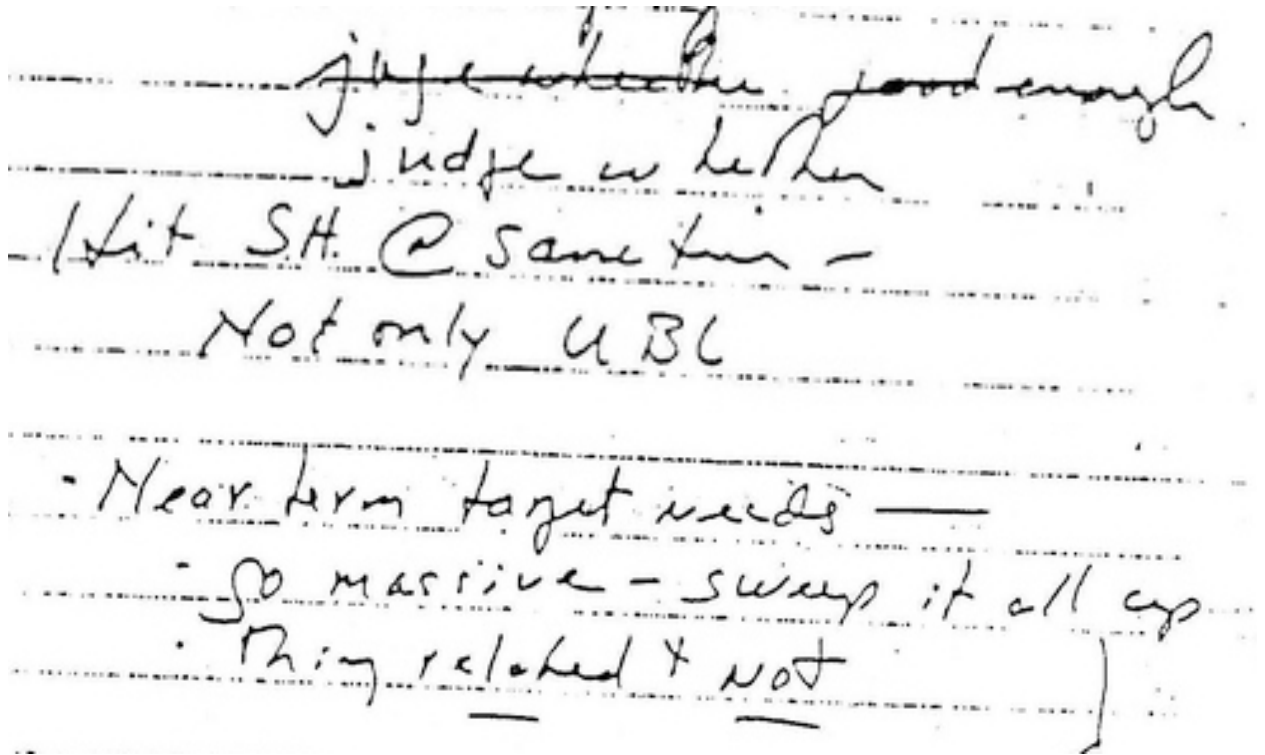 juge whether good enough
judge whether
Hit S.H. @ same time -
Not only UBL
· Near term target needs —
· go massive - sweep it all up
· Thing related + not